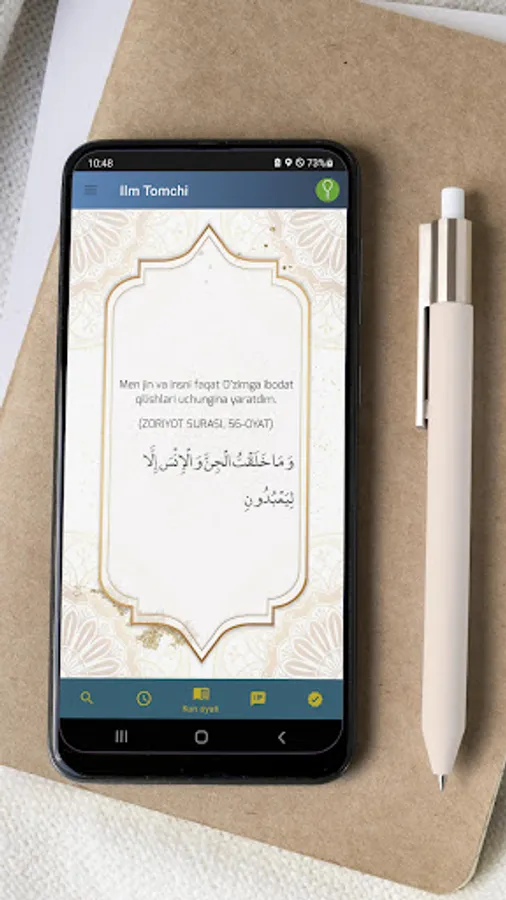 10:48
73%
Ilm Tomchi
Men jin va insni faqat O'zimga ibodat
qilishlari uchungina yaratdim.
(ZORIYOT SURASI, 56-OYAT)
وَمَا خَلَقْتُ الْجِنَّ وَالْإِنْسَ إِلَّا
لِيَعْبُدُونِ
Kun oyati